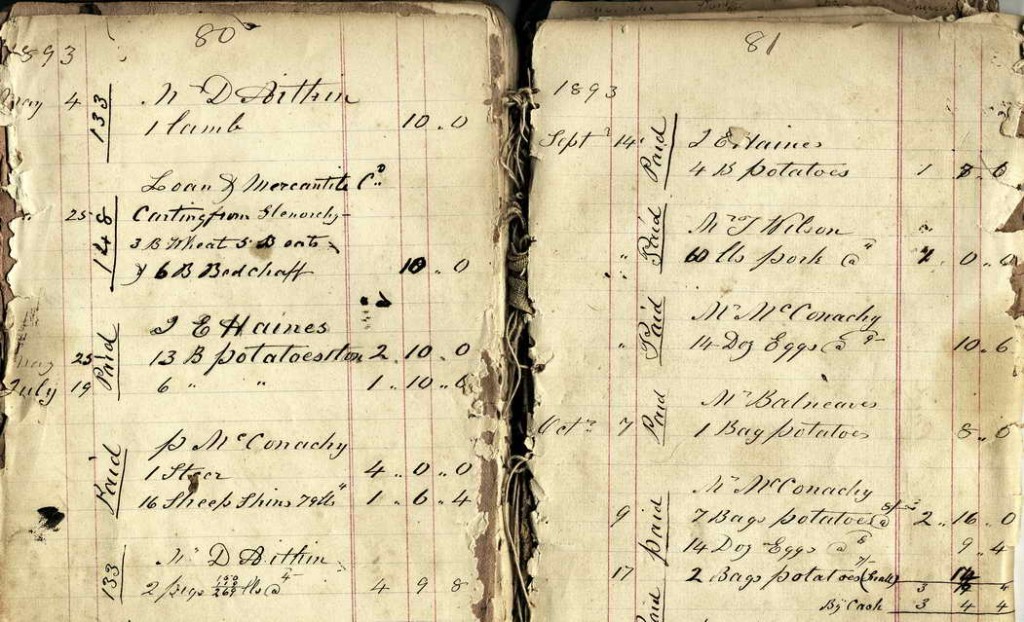 80
1893
May 4 133 Mr D Aitkin
1 lamb 10 .. 0
Loan & Mercantile Co
" 25 148 Carting from Glenorchy
3 B Wheat 5 B oats
& 6 B Bedchaff 10 .. 0
J E Haines
May 25 Paid 13 B potatoes 2 .. 10 .. 0
July 19 6 " " 1 .. 10 .. 6
Paid P McConachy
1 Steer 4 .. 0 .. 0
16 Sheep Skins 79 lbs 1 .. 6 .. 4
133 Mr D Aitkin
2 pigs 269 lbs @ 4 4 9 8
81
1893
Sept 14 Paid J E Haines
4 B potatoes 1 8 .. 0
Paid Mr J Wilson
" " 60 lbs pork @ 0 .. 0
Paid Mr McConachy
" 14 Doz Eggs @ 9 10 .. 6
Mr Balneaves
Oct 7 Paid 1 Bag potatoes 8 .. 0
Mr McConachy
9 Paid 7 Bags potatoes @ 2 .. 16 .. 0
14 Doz Eggs @ 8 9 .. 4
17 2 Bags potatoes 14
By Cash 3 4 4